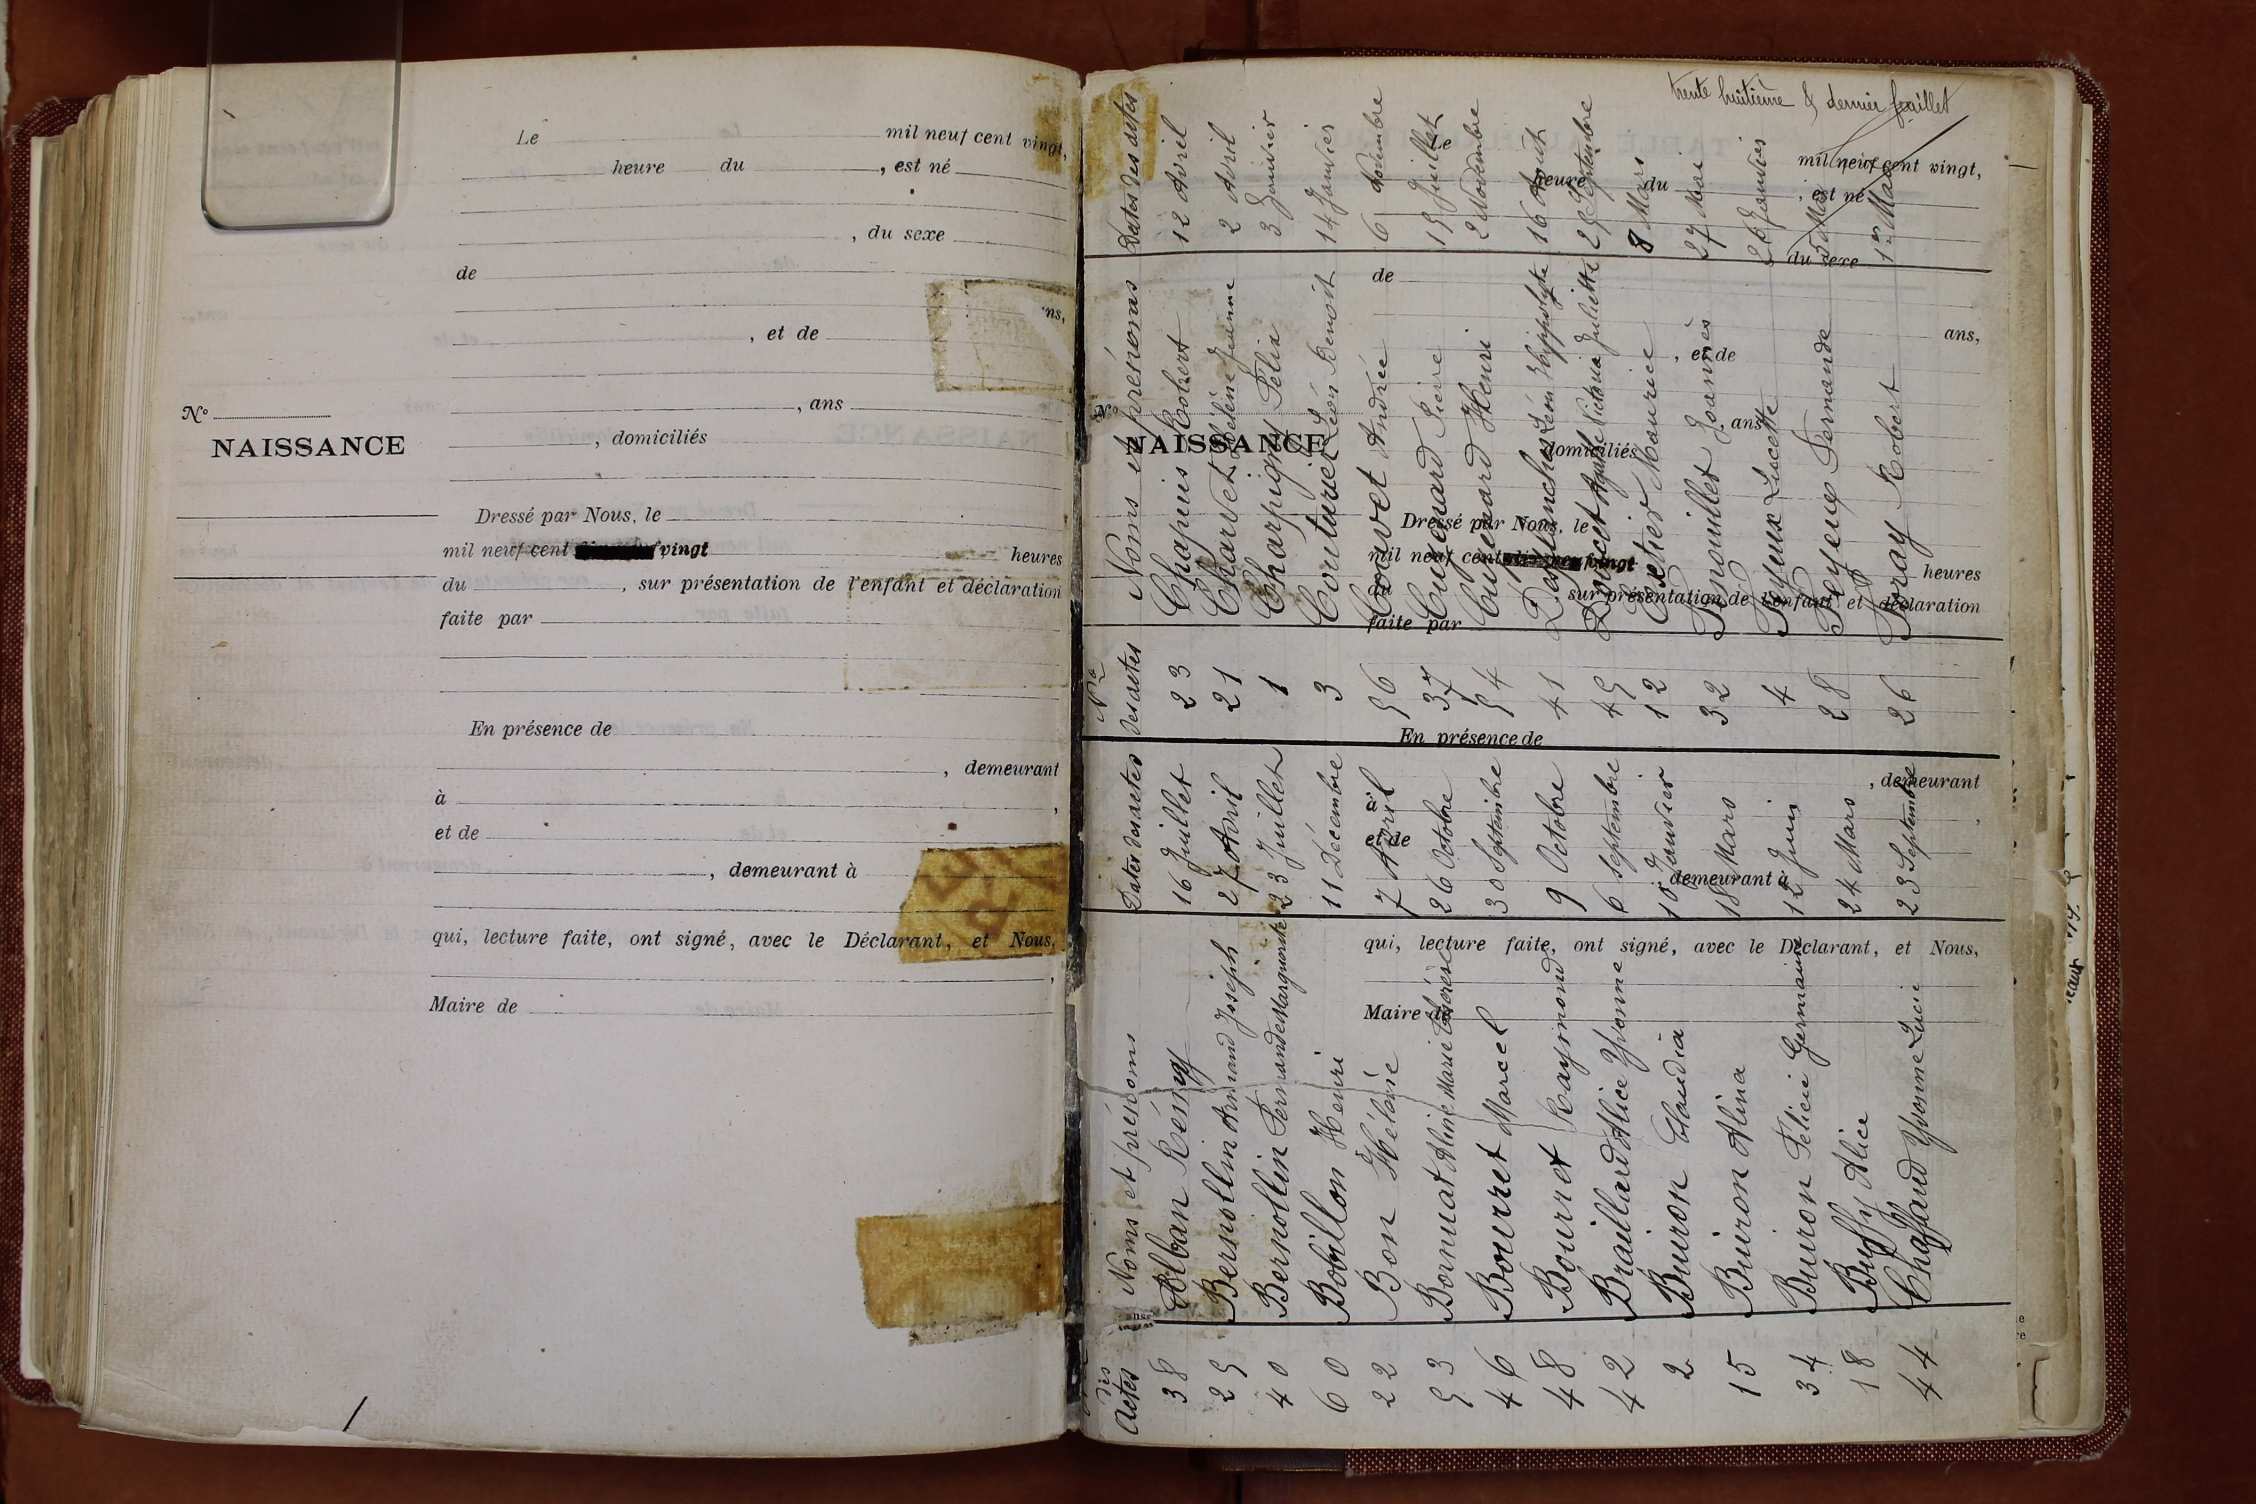 Le mil neuf cent vingt,
heure du , est né
, du sexe
de
ns,
, et de
, ans
N°
NAISSANCE
, domiciliés
Dressé par Nous, le
mil neuf cent vingt heures
du , sur présentation de l'enfant et déclaration
faite par
En présence de
, demeurant
à ,
et de
, demeurant à
qui, lecture faite, ont signé, avec le Déclarant, et Nous,
,
Maire de
trente huitième & dernier feuillet
Le mil neuf cent vingt,
heure du , est né
du sexe
de
ans,
, et de
N° , ans
NAISSANCE
domiciliés
Dressé par Nous, le
mil neuf cent vingt
heures
du sur présentation de l'enfant et déclaration
faite par
En présence de
, demeurant
à
et de
demeurant à
qui, lecture faite, ont signé, avec le Déclarant, et Nous,
Maire de
des Actes Noms et prénoms Dates des actes
38 Alban Rémy 16 Juillet
25 Bernollin Armand Joseph 27 Avril
40 Bernollin Fernande Marguerite 23 Juillet
60 Bobillon Henri 11 Décembre
22 Bon Hélène 7 Avril
53 Bornuat Aline Marie Thérèse 26 Octobre
46 Bourret Marcel 30 Septembre
48 Bourret Raymond 9 Octobre
42 Braillard Alice Yvonne 6 Septembre
2 Buiron Claudia Janvier
15 Buiron Alina 18 Mars
34 Buiron Félicie Germaine 12 Juin
18 Buffy Alice 24 Mars
44 Chaffaud Yvonne Lucie 23 Septembre
Nos des actes Noms et prénoms Dates des actes
23 Chapuis Robert 12 Avril
21 Charvet Hélène Jeanne 2 Avril
1 Charpigny Félix 3 Janvier
3 Couturier Léon Benoît 14 Janvier
56 Andrée 6 Novembre
37 Cuzenard Pierre 15 Juillet
54 Cuzenard Henri 2 Novembre
41 Léon Hippolyte 16 Août
45 Doucet Victoria Juliette 25 Septembre
12 Maurice 8 Mars
32 Fenouillet Joannès 27 Mai
4 Feyeux Lucette 26 Janvier
28 Feyeux Fernande 5 Mai
26 Foray Robert 1er Mai